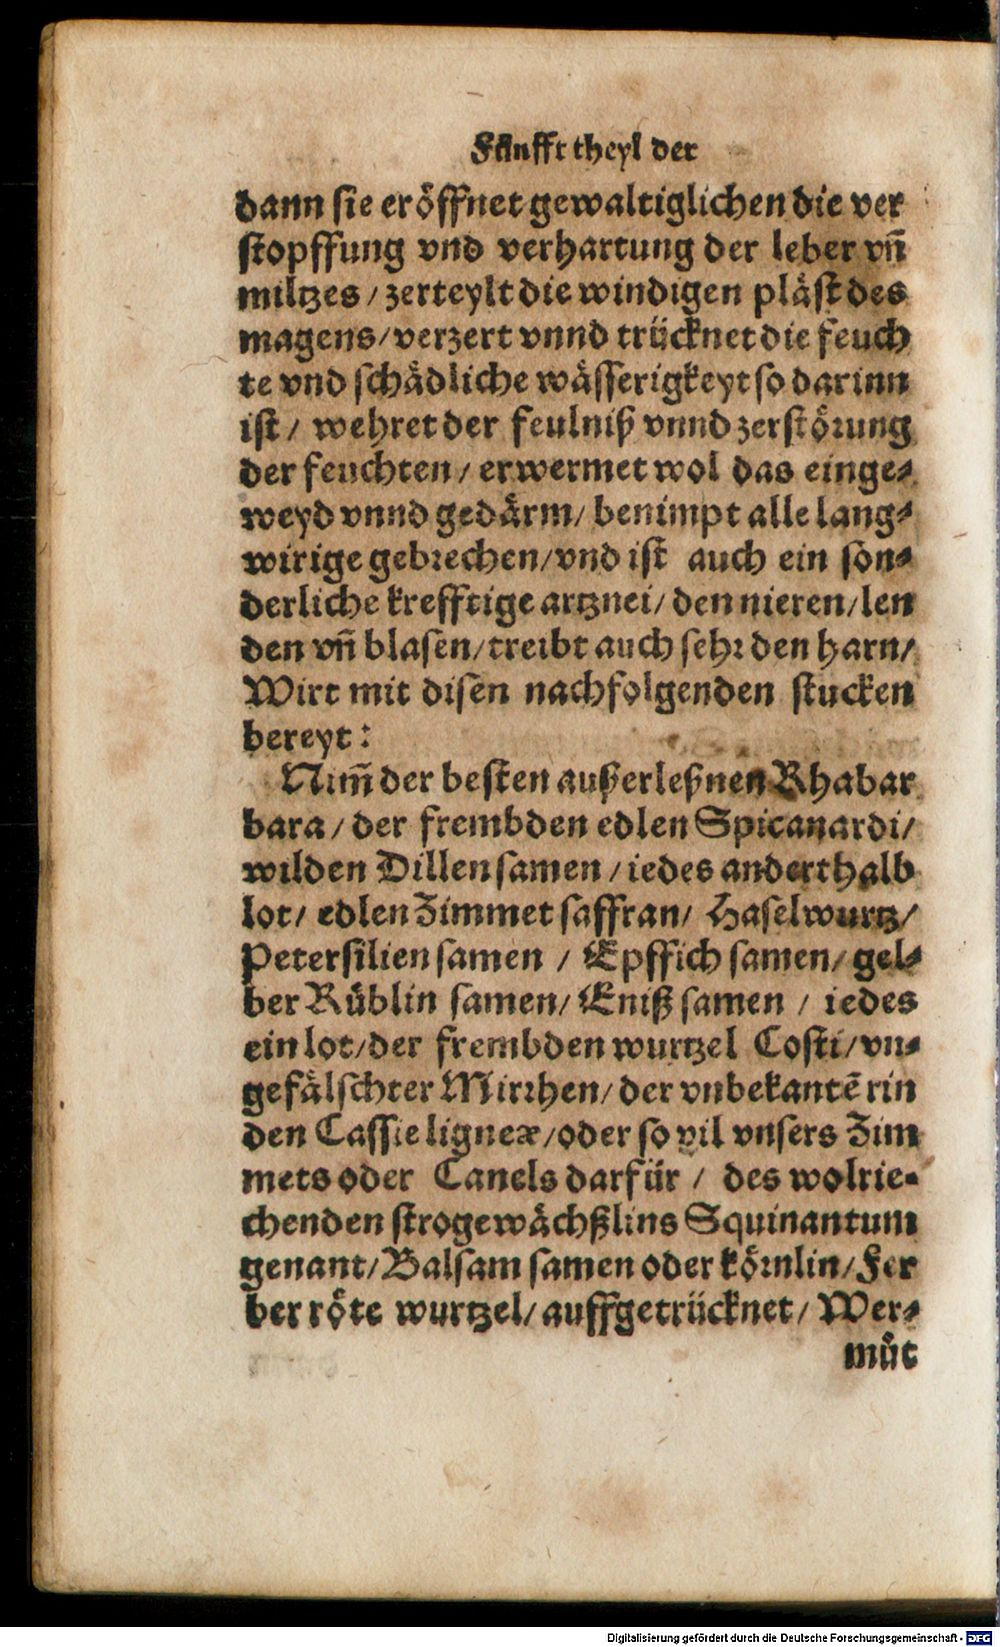 Fünfft theyl der
dann sie eröffnet gewaltiglichen die ver
stopffung vnd verhartung der leber vñ
miltzes / zerteylt die windigen pläst des
magens / verzert vnnd trücknet die feuch
te vnd schädliche wässerigkeyt so darinn
ist / wehret der feulniß vnnd zerstörung
der feuchten / erwermet wol das einge⸗
weyd vnnd gedärm / benimpt alle lang⸗
wirige gebrechen / vnd ist auch ein son⸗
derliche krefftige artznei / den nieren / len
den vñ blasen / treibt auch sehr den harn /
Wirt mit disen nachfolgenden stucken
bereyt :
Nim̃ der besten außerleßnen Rhabar
bara / der frembden edlen Spicanardi /
wilden Dillen samen / iedes anderthalb
lot / edlen Zimmet saffran / Haselwurtz /
Petersilien samen / Epffich samen / gel⸗
ber Rüblin samen / Eniß samen / iedes
ein lot / der frembden wurtzel Costi / vn⸗
gefälschter Mirrhen / der vnbekantē rin
den Cassie ligneæ / oder so vil vnsers Zim
mets oder Canels darfür / des wolrie⸗
chenden strogewächßlins Squinantum
genant / Balsam samen oder körnlin / Fer
ber röte wurtzel / auffgetrücknet / Wer⸗
můt
Digitalisierung gefördert durch die Deutsche Forschungsgemeinschaft - DFG